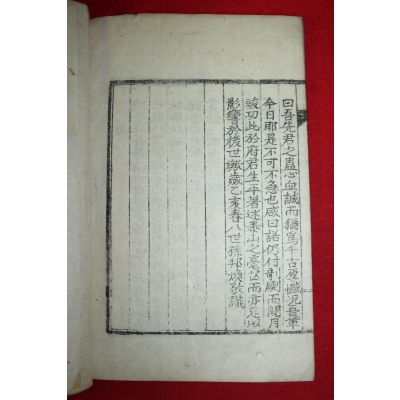 曰吾先君之盡心血誠而猶爲千古厚憾况吾輩
今日耶是不可不急也咸曰諾仍付剞劂而閱月
竣功此於府君生平著述泰山之毫芒而亦足以
影響於後世歟歲乙亥春八世孫邦煥敬識